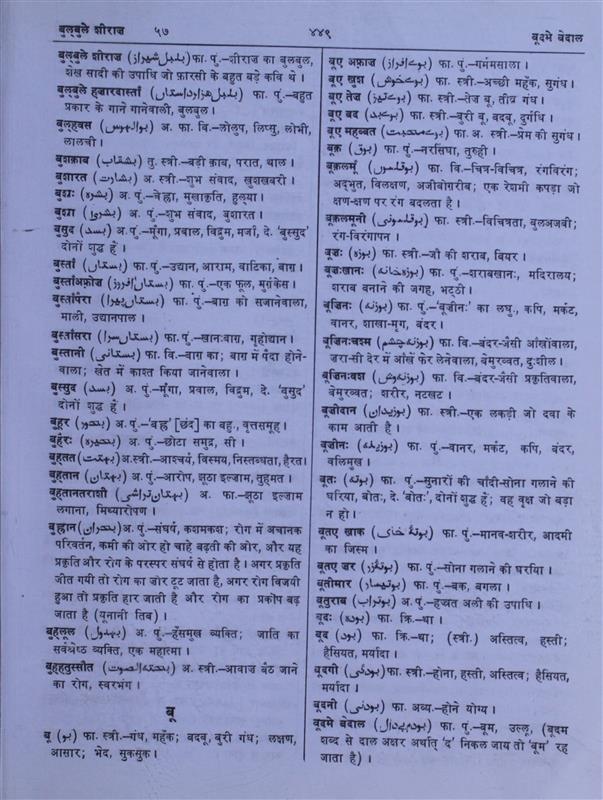 बुल्बुले शीराज़ ५७
४४९
बूदमे बेदाल
बुल्बुले शीराज़ (بلبل شیراز) फा. पुं.–शीराज का बुलबुल,
शेख सादी की उपाधि जो फ़ारसी के बहुत बड़े कवि थे ।
बुल्बुले हज़ारदास्ताँ (بلبل هزارداستاں) फा. पुं.–बहुत
प्रकार के गाने गानेवाली, बुलबुल।
बुलहवस (بوالہوس) अ. फा. वि.–लोलुप, लिप्सु, लोभी,
लालची ।
बुशक़ाब (بشقاب) तु. स्त्री.–बड़ी क़ाब, परात, थाल ।
बुशारत (بشارت) अ. स्त्री.–शुभ संवाद, खुशखबरी ।
बुश्रः (بشره) अ. पुं.–चेह्रा, मुखाकृति, हुलया ।
बुश्रा (بشریٰ) अ. पुं.–शुभ संवाद, बुशारत ।
बुसुद (بسد) अ. पुं.–मूँगा, प्रवाल, विद्रुम, मर्जां, दे. 'बुस्सुद'
दोनों शुद्ध हैं ।
बुस्ताँ (بستاں) फा. पुं.–उद्यान, आराम, वाटिका, बाग़ ।
बुस्ताँअफ़्रोज़ (بستاں افروز) फा. पुं.–एक फूल, मुर्ग़केस ।
बुस्ताँपैरा (بستاں پیرا) फा. पुं.–बाग़ को सजानेवाला,
माली, उद्यानपाल ।
बुस्ताँसरा (بستاں سرا) फा. पुं.–खानःबाग़, गृहोद्यान ।
बुस्तानी (بستانی) फा. वि.–बाग़ का; बाग़ में पैदा होने-
वाला; खेत में काश्त किया जानेवाला ।
बुस्सुद (بسد) अ. पुं.–मूँगा, प्रवाल, विद्रुम, दे. 'बुसुद'
दोनों शुद्ध हैं ।
बुहूर (بحور) अ. पुं.–'बह्र' [छंद] का बहु., वृत्तसमूह ।
बुहैरः (بحیره) अ. पुं.–छोटा समुद्र, सी ।
बुहतत (بہتت) अ.स्त्री.–आश्चर्य, विस्मय, निस्तब्धता, हैरत।
बुहतान (بہتان) अ. पुं.–आरोप, झूठा इल्जाम, तुहमत ।
बुहतानतराशी (بہتان تراشی) अ. फा.–झूठा इल्ज़ाम
लगाना, मिथ्यारोपण ।
बुह्रान (بحران) अ. पुं.–संघर्ष, कशमकश; रोग में अचानक
परिवर्तन, कमी की ओर हो चाहे बढ़ती की ओर, और यह
प्रकृति और रोग के परस्पर संघर्ष से होता है । अगर प्रकृति
जीत गयी तो रोग का ज़ोर टूट जाता है, अगर रोग विजयी
हुआ तो प्रकृति हार जाती है और रोग का प्रकोप बढ़
जाता है (यूनानी तिब) ।
बुहलूल (بہلول) अ. पुं.–हँसमुख व्यक्ति; जाति का
सर्वश्रेष्ठ व्यक्ति, एक महात्मा ।
बुहहतुस्सौत (بحتہ الصوت) अ. स्त्री.–आवाज़ बैठ जाने
का रोग, स्वरभंग ।
बू
बू (بو) फा. स्त्री.–गंध, महँक; बदबू, बुरी गंध; लक्षण,
आसार; भेद, सुकसुक ।
बूए अफ़्ज़ार (بوے افزار) फा. पुं.–गर्ममसाला ।
बूए खुश (بوے خوش) फा. स्त्री.–अच्छी महँक, सुगंध ।
बूए तेज़ (بوے تیز) फा. स्त्री.–तेज़ बू, तीव्र गंध ।
बूए बद (بوے بد) फा. स्त्री.–बुरी बू, बदबू, दुर्गंधि ।
बूए महब्बत (بوے محبت) फा. अ. स्त्री.–प्रेम की सुगंध।
बूक़ (بوق) फा. पुं.–नरसिंघा, तुरुही ।
बूक़लमूँ (بوقلموں) फा. वि.–चित्र-विचित्र, रंगबिरंग;
अद्भुत, विलक्षण, अजीबोगरीब; एक रेशमी कपड़ा जो
क्षण-क्षण पर रंग बदलता है ।
बूक़लमूनी (بوقلمونی) फा. स्त्री.–विचित्रता, बुलअजबी;
रंग-बिरंगापन ।
बूज़ः (بوزه) फा. स्त्री.–जौ की शराब, बियर ।
बूज़ःखानः (بوزه خانہ) फा. पुं.–शराबखानः, मदिरालय;
शराब बनाने की जगह, भट्ठी ।
बूज़िनः (بوزنہ) फा. पुं.–'बूज़ीनः' का लघु., कपि, मर्कट,
वानर, शाखा-मृग, बंदर ।
बूज़िनःचश्म (بوزنہ چشم) फा. वि.–बंदर-जैसी आँखोंवाला,
ज़रा-सी देर में आँखें फेर लेनेवाला, बेमुरव्वत, दुःशील ।
बूज़िनःवश (بوزنہ وش) फा. वि.–बंदर-जैसी प्रकृतिवाला,
बेमुरव्वत; शरीर, नटखट ।
बूज़ीदान (بوزیدان) फा. स्त्री.–एक लकड़ी जो दवा के
काम आती है ।
बूज़ीनः (بوزینہ) फा. पुं.–वानर, मर्कट, कपि, बंदर,
वलिमुख ।
बूतः (بوتہ) फा. पुं.–सुनारों की चाँदी-सोना गलाने की
घरिया, बोतः, दे. 'बोतः', दोनों शुद्ध हैं; वह वृक्ष जो बड़ा
न हो ।
बूतए खाक (بوتۂ خاک) फा. पुं.–मानव-शरीर, आदमी
का जिस्म ।
बूतए ज़र (بوتۂ زر) फा. पुं.–सोना गलाने की घरिया ।
बूतीमार (بوتیمار) फा. पुं.–बक, बगला ।
बूतुराब (بوتراب) अ. पुं.–हज़्रत अली की उपाधि ।
बूदः (بوده) फा. क्रि.–था ।
बूद (بود) फा. क्रि.–था; (स्त्री.) अस्तित्व, हस्ती;
हैसियत, मर्यादा ।
बूदगी (بودگی) फा. स्त्री.–होना, हस्ती, अस्तित्व; हैसियत,
मर्यादा ।
बूदनी (بودنی) फा. अव्य.–होने योग्य ।
बूदमे बेदाल (بودم بے دال) फा. पुं.–बूम, उल्लू, (बूदम
शब्द से दाल अक्षर अर्थात् 'द' निकल जाय तो 'बूम' रह
जाता है) ।